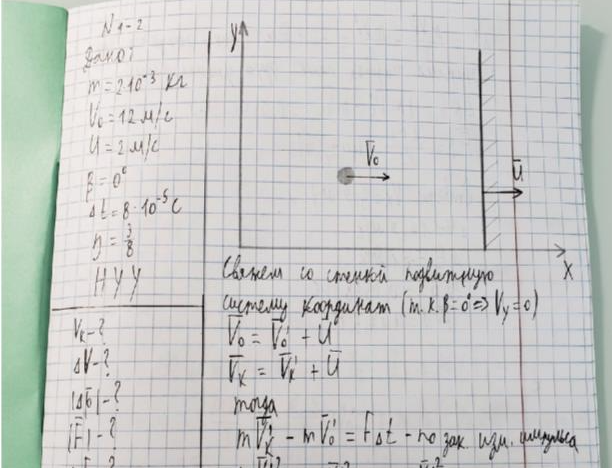 N 1-2
Дано:
m = 2·10⁻³ кг
V₀ = 12 м/с
U = 2 м/с
β = 0°
Δt = 8·10⁻⁵ с
η = 3/8
НУУ
Vк - ?
ΔV - ?
|Δp̄| - ?
|F̄| - ?
y
V̄₀
Ū
x
Свяжем со стенкой подвижную
систему координат (т.к. β=0° => Vy=0)
V̄₀ = V̄₀' + Ū
V̄к = V̄к' + Ū
тогда
mV̄к' - mV̄₀' = FΔt - по зак. изм. импульса